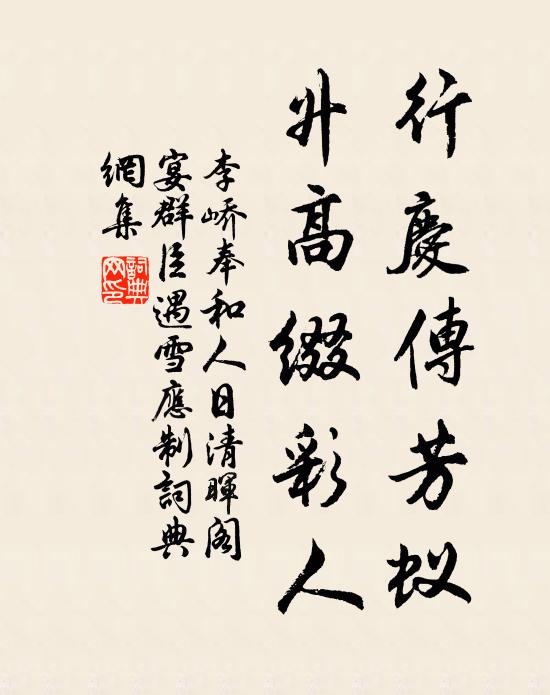 行慶傳芳蚁
升高綴彩人
李嶠奉和人日清暉阁
宴群臣遇雪應制詞典
網集
詞典网印